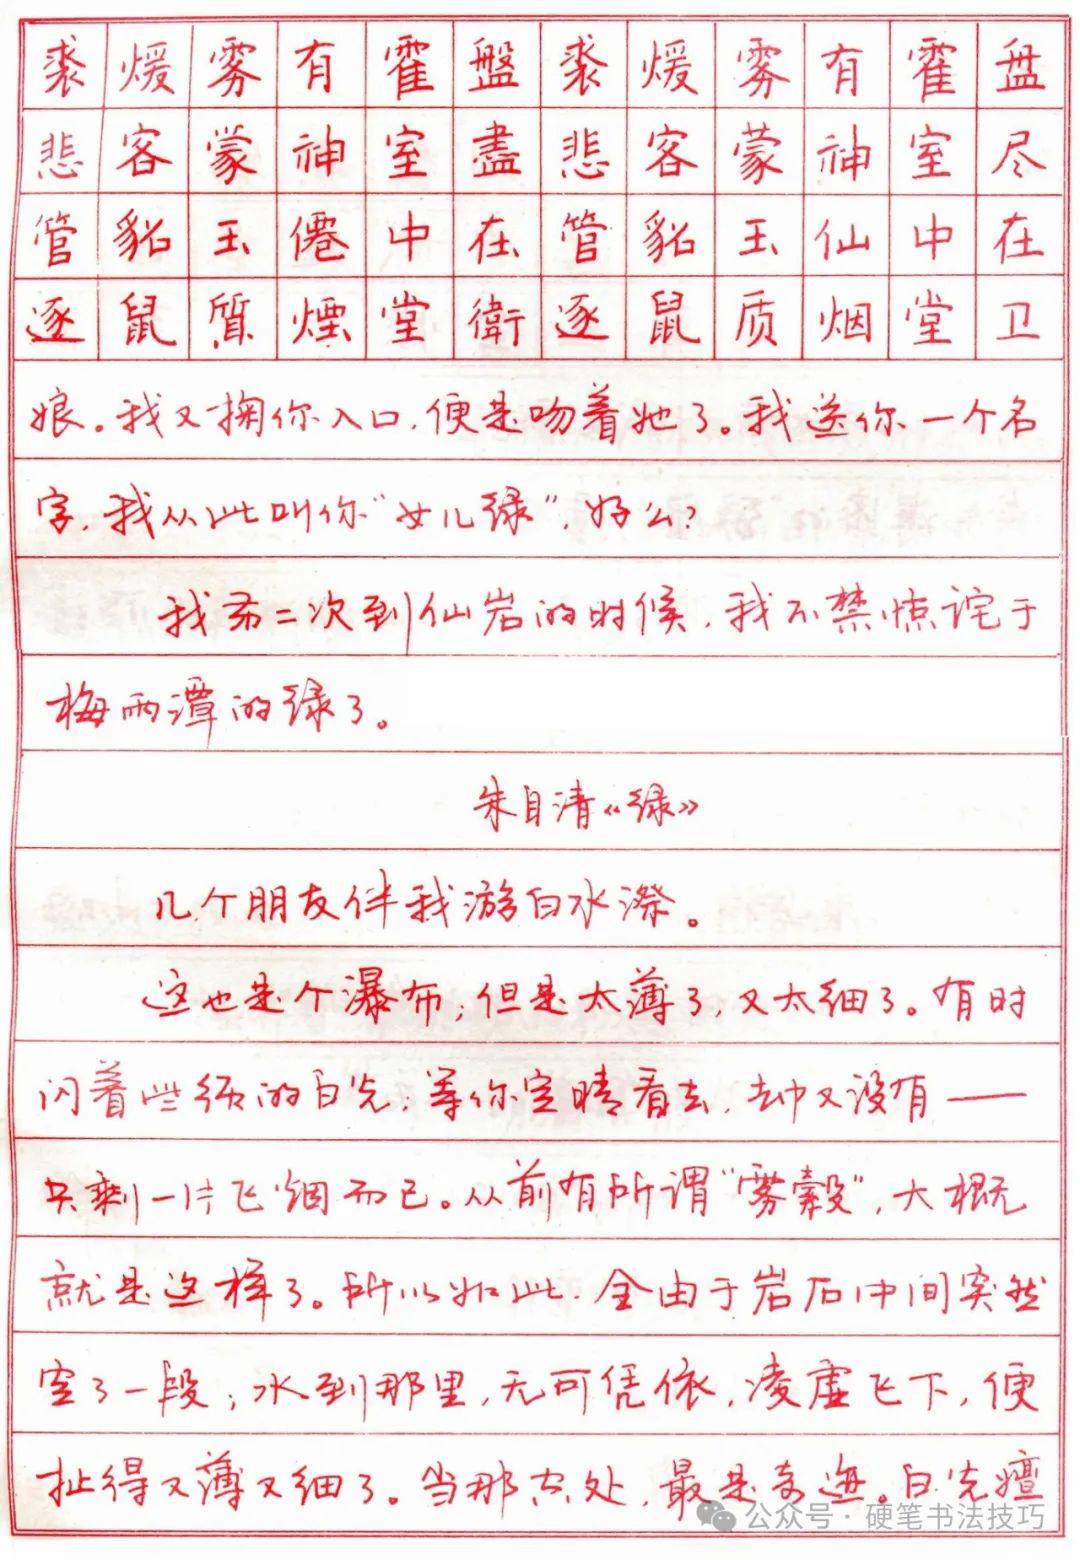 盘尽在卫
霍室中堂
有神仙烟
雾蒙玉质
煖客貂鼠
裘悲管逐
盤盡在衛
霍室中堂
有神僊煙
雾蒙玉質
煖客貂鼠
裘悲管逐
娘。我又掬你入口,便是吻着她了。我送你一个名
字,我从此叫你“女儿绿”,好么?
我第二次到仙岩的时候,我不禁惊诧于
梅雨潭的绿了。
朱自清《绿》
几个朋友伴我游白水漈。
这也是个瀑布;但是太薄了,又太细了。有时
闪着些须的白光;等你定睛看去,却又没有——
只剩一片飞烟而已。从前有所谓“雾縠”,大概
就是这样了。所以如此,全由于岩石中间突然
空了一段;水到那里,无可凭依,凌虚飞下,便
扯得又薄又细了。当那空处,最是奇迹。白光嬗
公众号·硬笔书法技巧